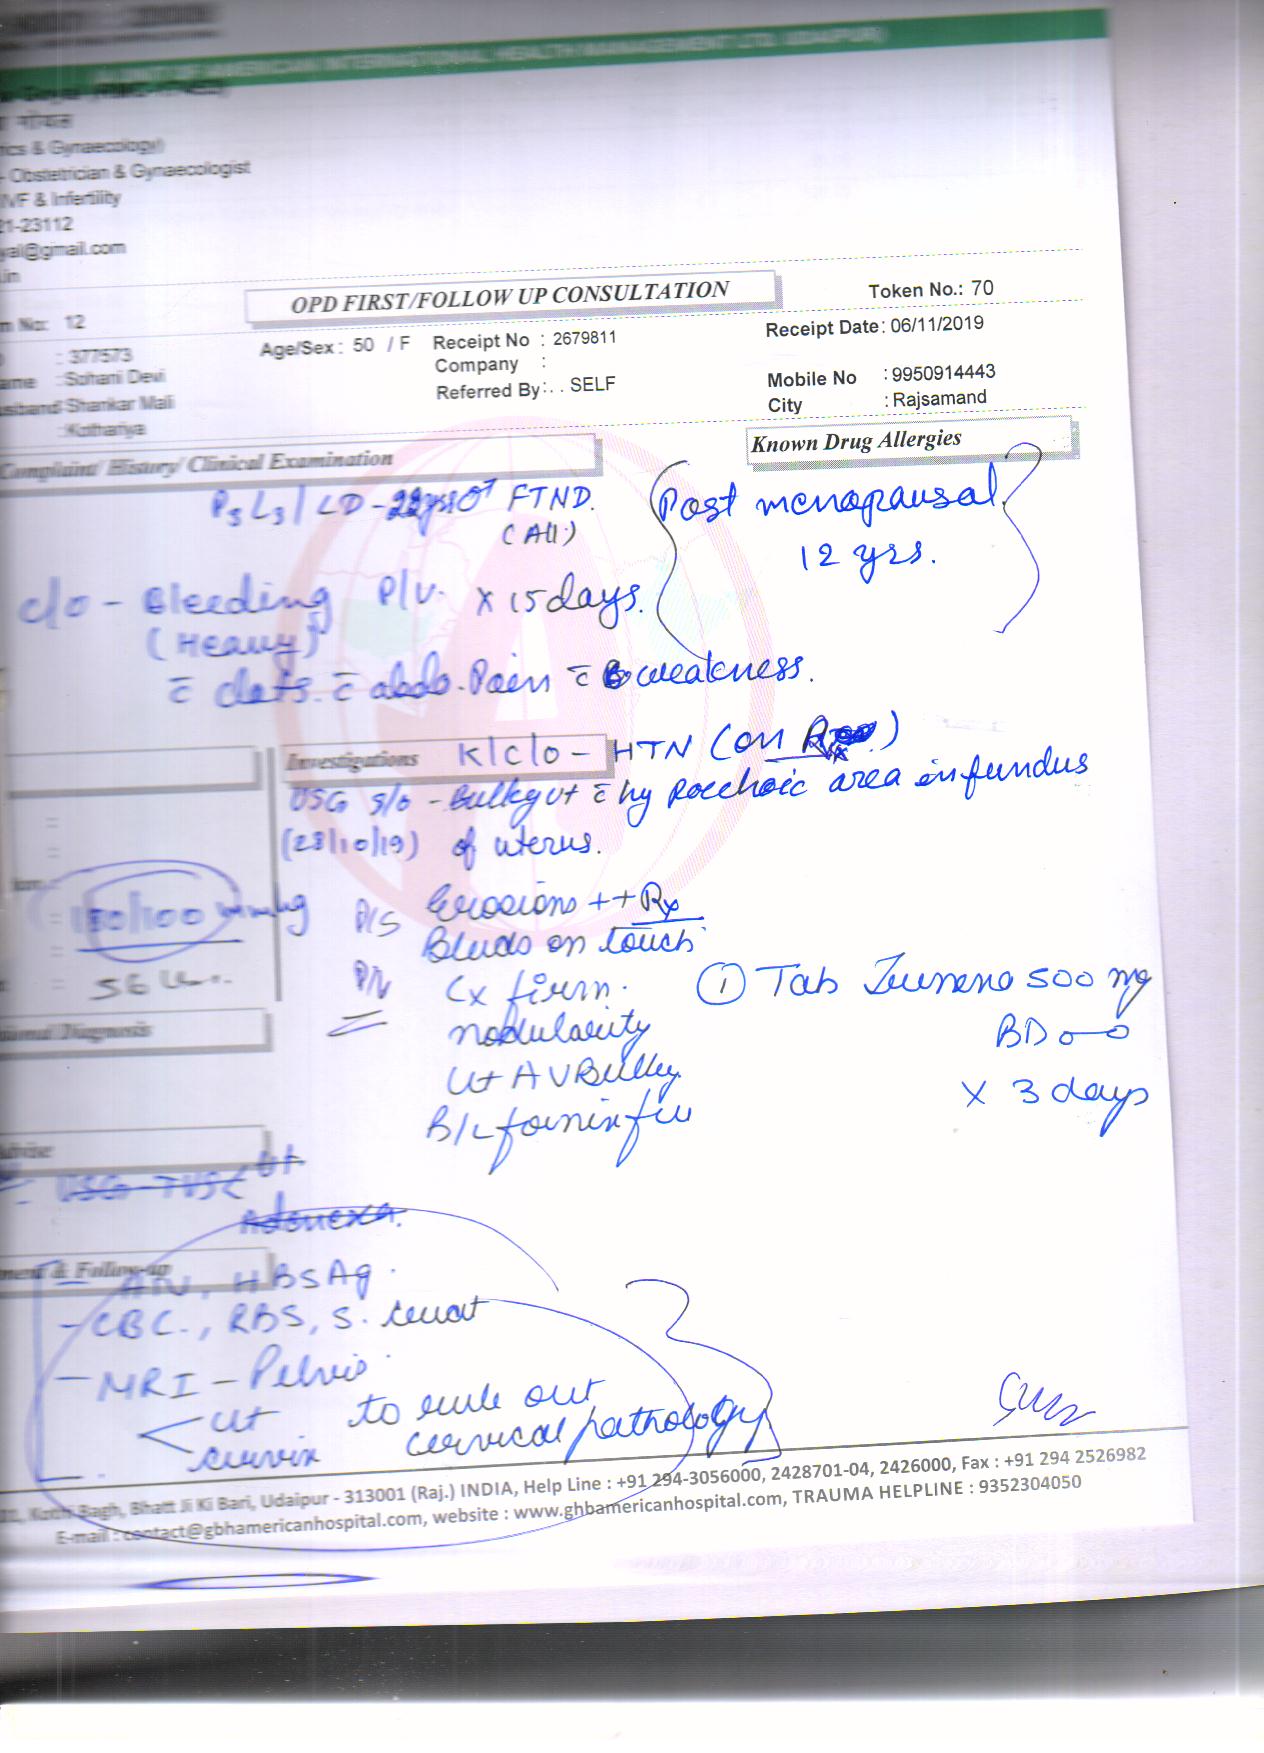 (A UNIT OF AMERICAN INTERNATIONAL HEALTH MANAGEMENT LTD. UDAIPUR)
गोयल
rics & Gynaecology)
- Obstetrician & Gynaecologist
IVF & Infertility
21-23112
yal@gmail.com
.in
OPD FIRST/FOLLOW UP CONSULTATION
Token No.: 70
m No: 12
Age/Sex : 50 / F
Receipt No : 2679811
Receipt Date : 06/11/2019
: 377573
Company :
ame : Sohani Devi
Referred By: . . SELF
Mobile No : 9950914443
usband Shankar Mali
City : Rajsamand
: Kothariya
Complaint/ History/ Clinical Examination
Known Drug Allergies
P3 L3 / LD - FTND.
(All)
Post menopausal
12 yrs.
c/o - Bleeding P/V. x 15 days.
(Heavy)
c̄ clots. c̄ abdo. Pain c̄ weakness.
Investigations
K/C/O - HTN (on
USG s/o - Bulky ut c̄ area in fundus
(23/10/19) of uterus.
mmhg
P/S Erosions ++
Bleeds on touch
Rx
P/V Cx firm.
nodularity
Ut AV Bulky
B/L fornix
① Tab 500 mg
BD
x 3 days
sional Diagnosis
Advise
USG - TVS Ut
Adenexa.
ment & Follow-up
HBsAg.
- CBC., RBS, S. creat
- MRI - Pelvis
< ut
cervix
to rule out
cervical pathology
Kothi Bagh, Bhatt Ji Ki Bari, Udaipur - 313001 (Raj.) INDIA, Help Line : +91 294-3056000, 2428701-04, 2426000, Fax : +91 294 2526982
E-mail : contact@gbhamericanhospital.com, website : www.ghbamericanhospital.com, TRAUMA HELPLINE : 9352304050